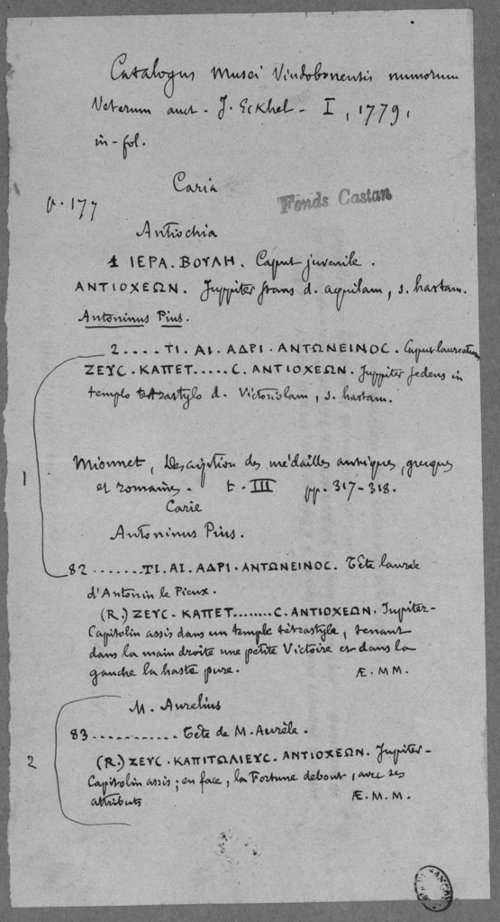 Catalogus Musei Vindobonensis numorum
Veterum auct. J. Eckhel - I, 1779,
in-fol.
Caria
p. 177
Fonds Castan
Antiochia
1 ΙΕΡΑ. ΒΟΥΛΗ. Caput juvenile.
ΑΝΤΙΟΧΕΩΝ. Juppiter stans d. aquilam, s. hastam.
Antoninus Pius.
2.... ΤΙ. ΑΙ. ΑΔΡΙ. ΑΝΤΩΝΕΙΝΟC. Caput laureatum
ΖΕΥC. ΚΑΠΕΤ.....C. ΑΝΤΙΟΧΕΩΝ. Juppiter sedens in
templo tetrastylo d. Victoriolam, s. hastam.
1
Mionnet, Description des médailles antiques, grecques
et romaines. t. III pp. 317-318.
Carie
Antoninus Pius.
82.......ΤΙ. ΑΙ. ΑΔΡΙ. ΑΝΤΩΝΕΙΝΟC. Tête laurée
d'Antonin le Pieux.
(R.) ΖΕΥC. ΚΑΠΕΤ........C. ΑΝΤΙΟΧΕΩΝ. Jupiter-
Capitolin assis dans un temple tétrastyle, tenant
dans la main droite une petite Victoire et dans la
gauche la haste pure. Æ. M M.
M. Aurelius
83........... Tête de M. Aurèle.
2
(R.) ΖΕΥC. ΚΑΠΙΤΩΛΙΕΥC. ΑΝΤΙΟΧΕΩΝ. Jupiter-
Capitolin assis; en face, la Fortune debout, avec ses
attributs Æ. M. M.